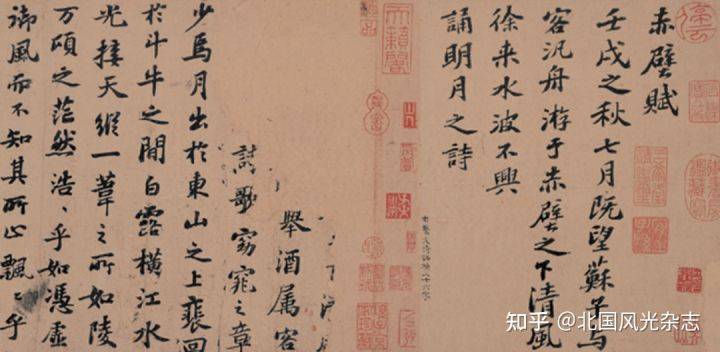 赤壁賦
壬戌之秋七月既望蘇子與
客汎舟游于赤壁之下清風
徐来水波不興
誦明月之詩
舉酒属客
詩歌窈窕之章
少焉月出於東山之上裵回
於斗牛之間白露橫江水
光接天縱一葦之所如陵
万頃之茫然浩〻乎如憑虛
御風而不知其所止飄〻乎
知乎 @北国风光杂志